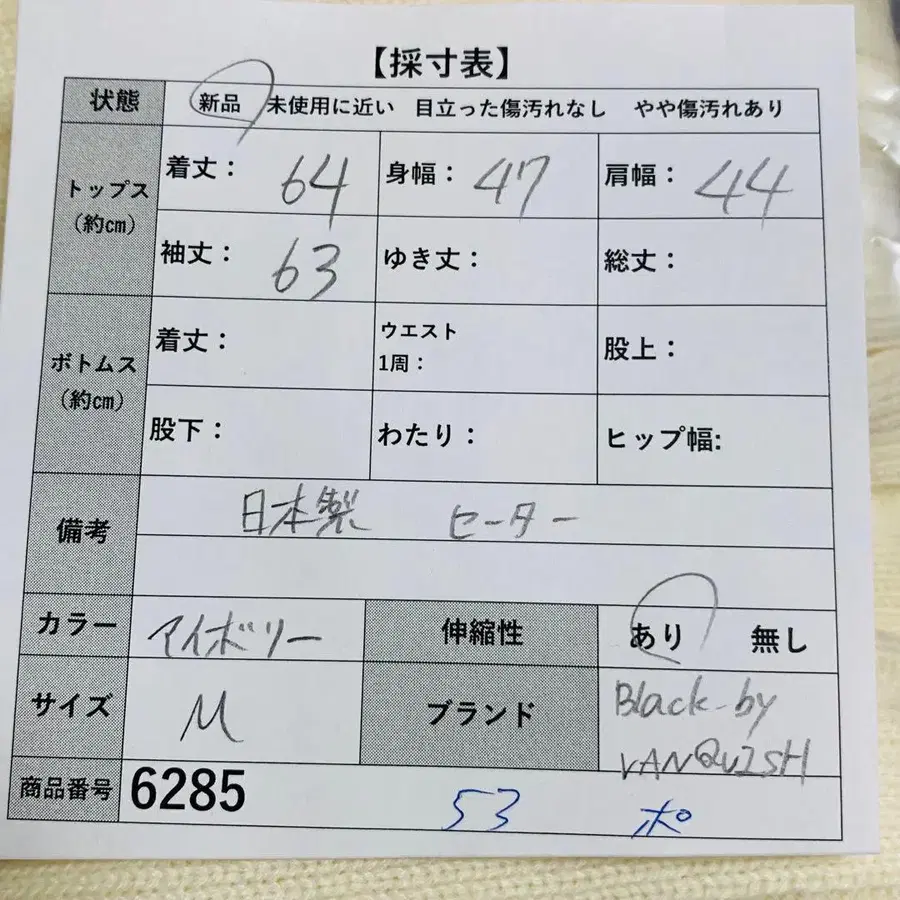 【採寸表】
状態 新品 未使用に近い 目立った傷汚れなし やや傷汚れあり
トップス（約cm） 着丈： 64 身幅： 47 肩幅： 44
袖丈： 63 ゆき丈： 総丈：
ボトムス（約cm） 着丈： ウエスト1周： 股上：
股下： わたり： ヒップ幅:
備考 日本製 セーター
カラー アイボリー 伸縮性 あり 無し
サイズ M ブランド Black by VANQUISH
商品番号 6285 53 ポ